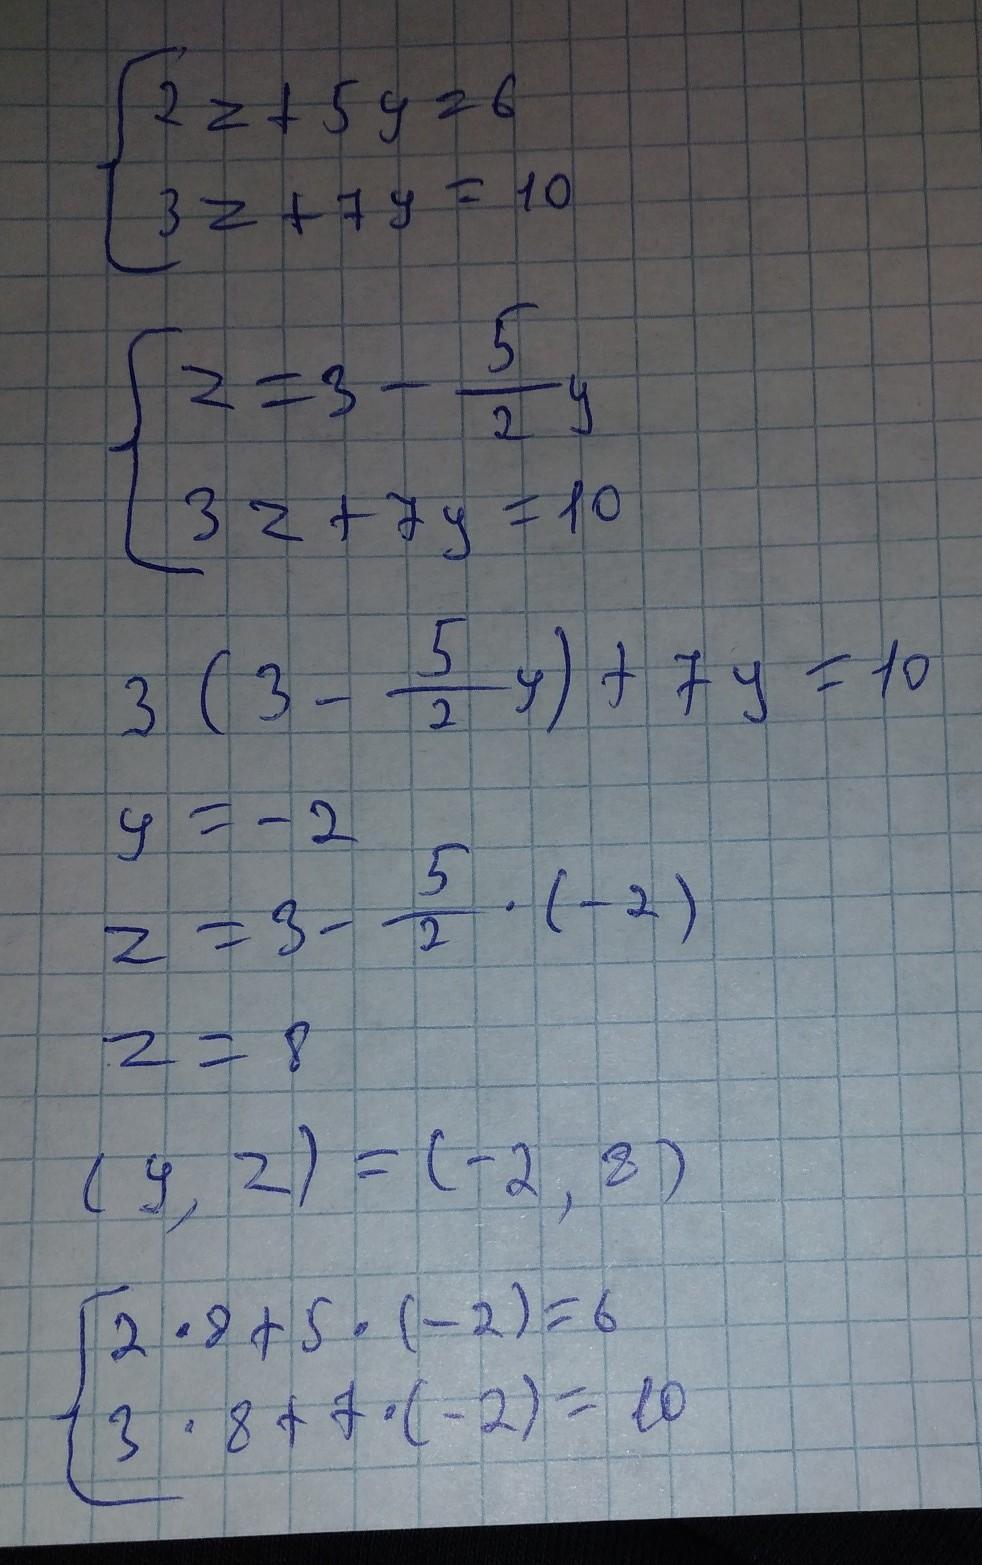 2z+5y=6
3z+7y=10
z=3-5/2y
3z+7y=10
3(3-5/2y)+7y=10
y=-2
z=3-5/2·(-2)
z=8
(y,z)=(-2,8)
2·8+5·(-2)=6
3·8+7·(-2)=10